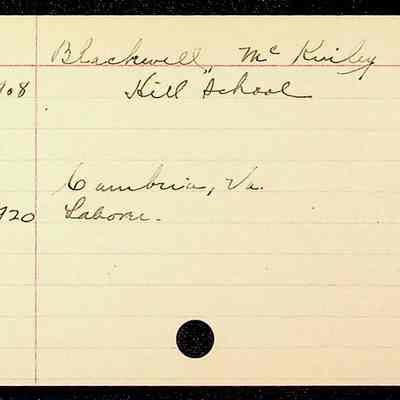 Blackwell, McKinley
908 Hill School
Cambria, Va.
920 Laborer.